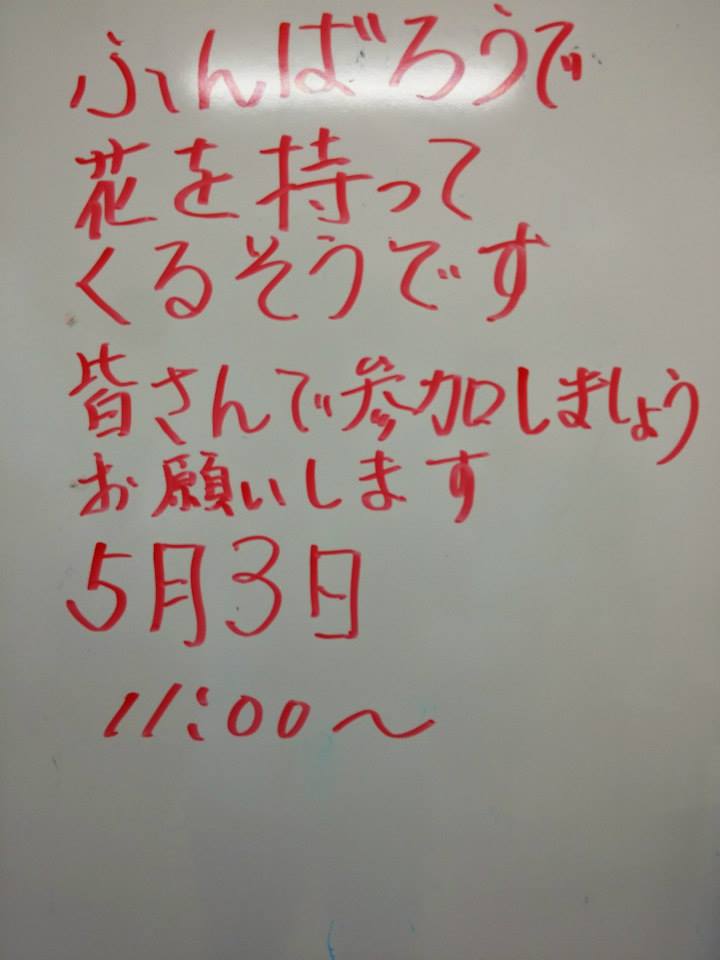 ふんばろうで
花を持って
くるそうです
皆さんで参加しましょう
お願いします
5月3日
11:00～